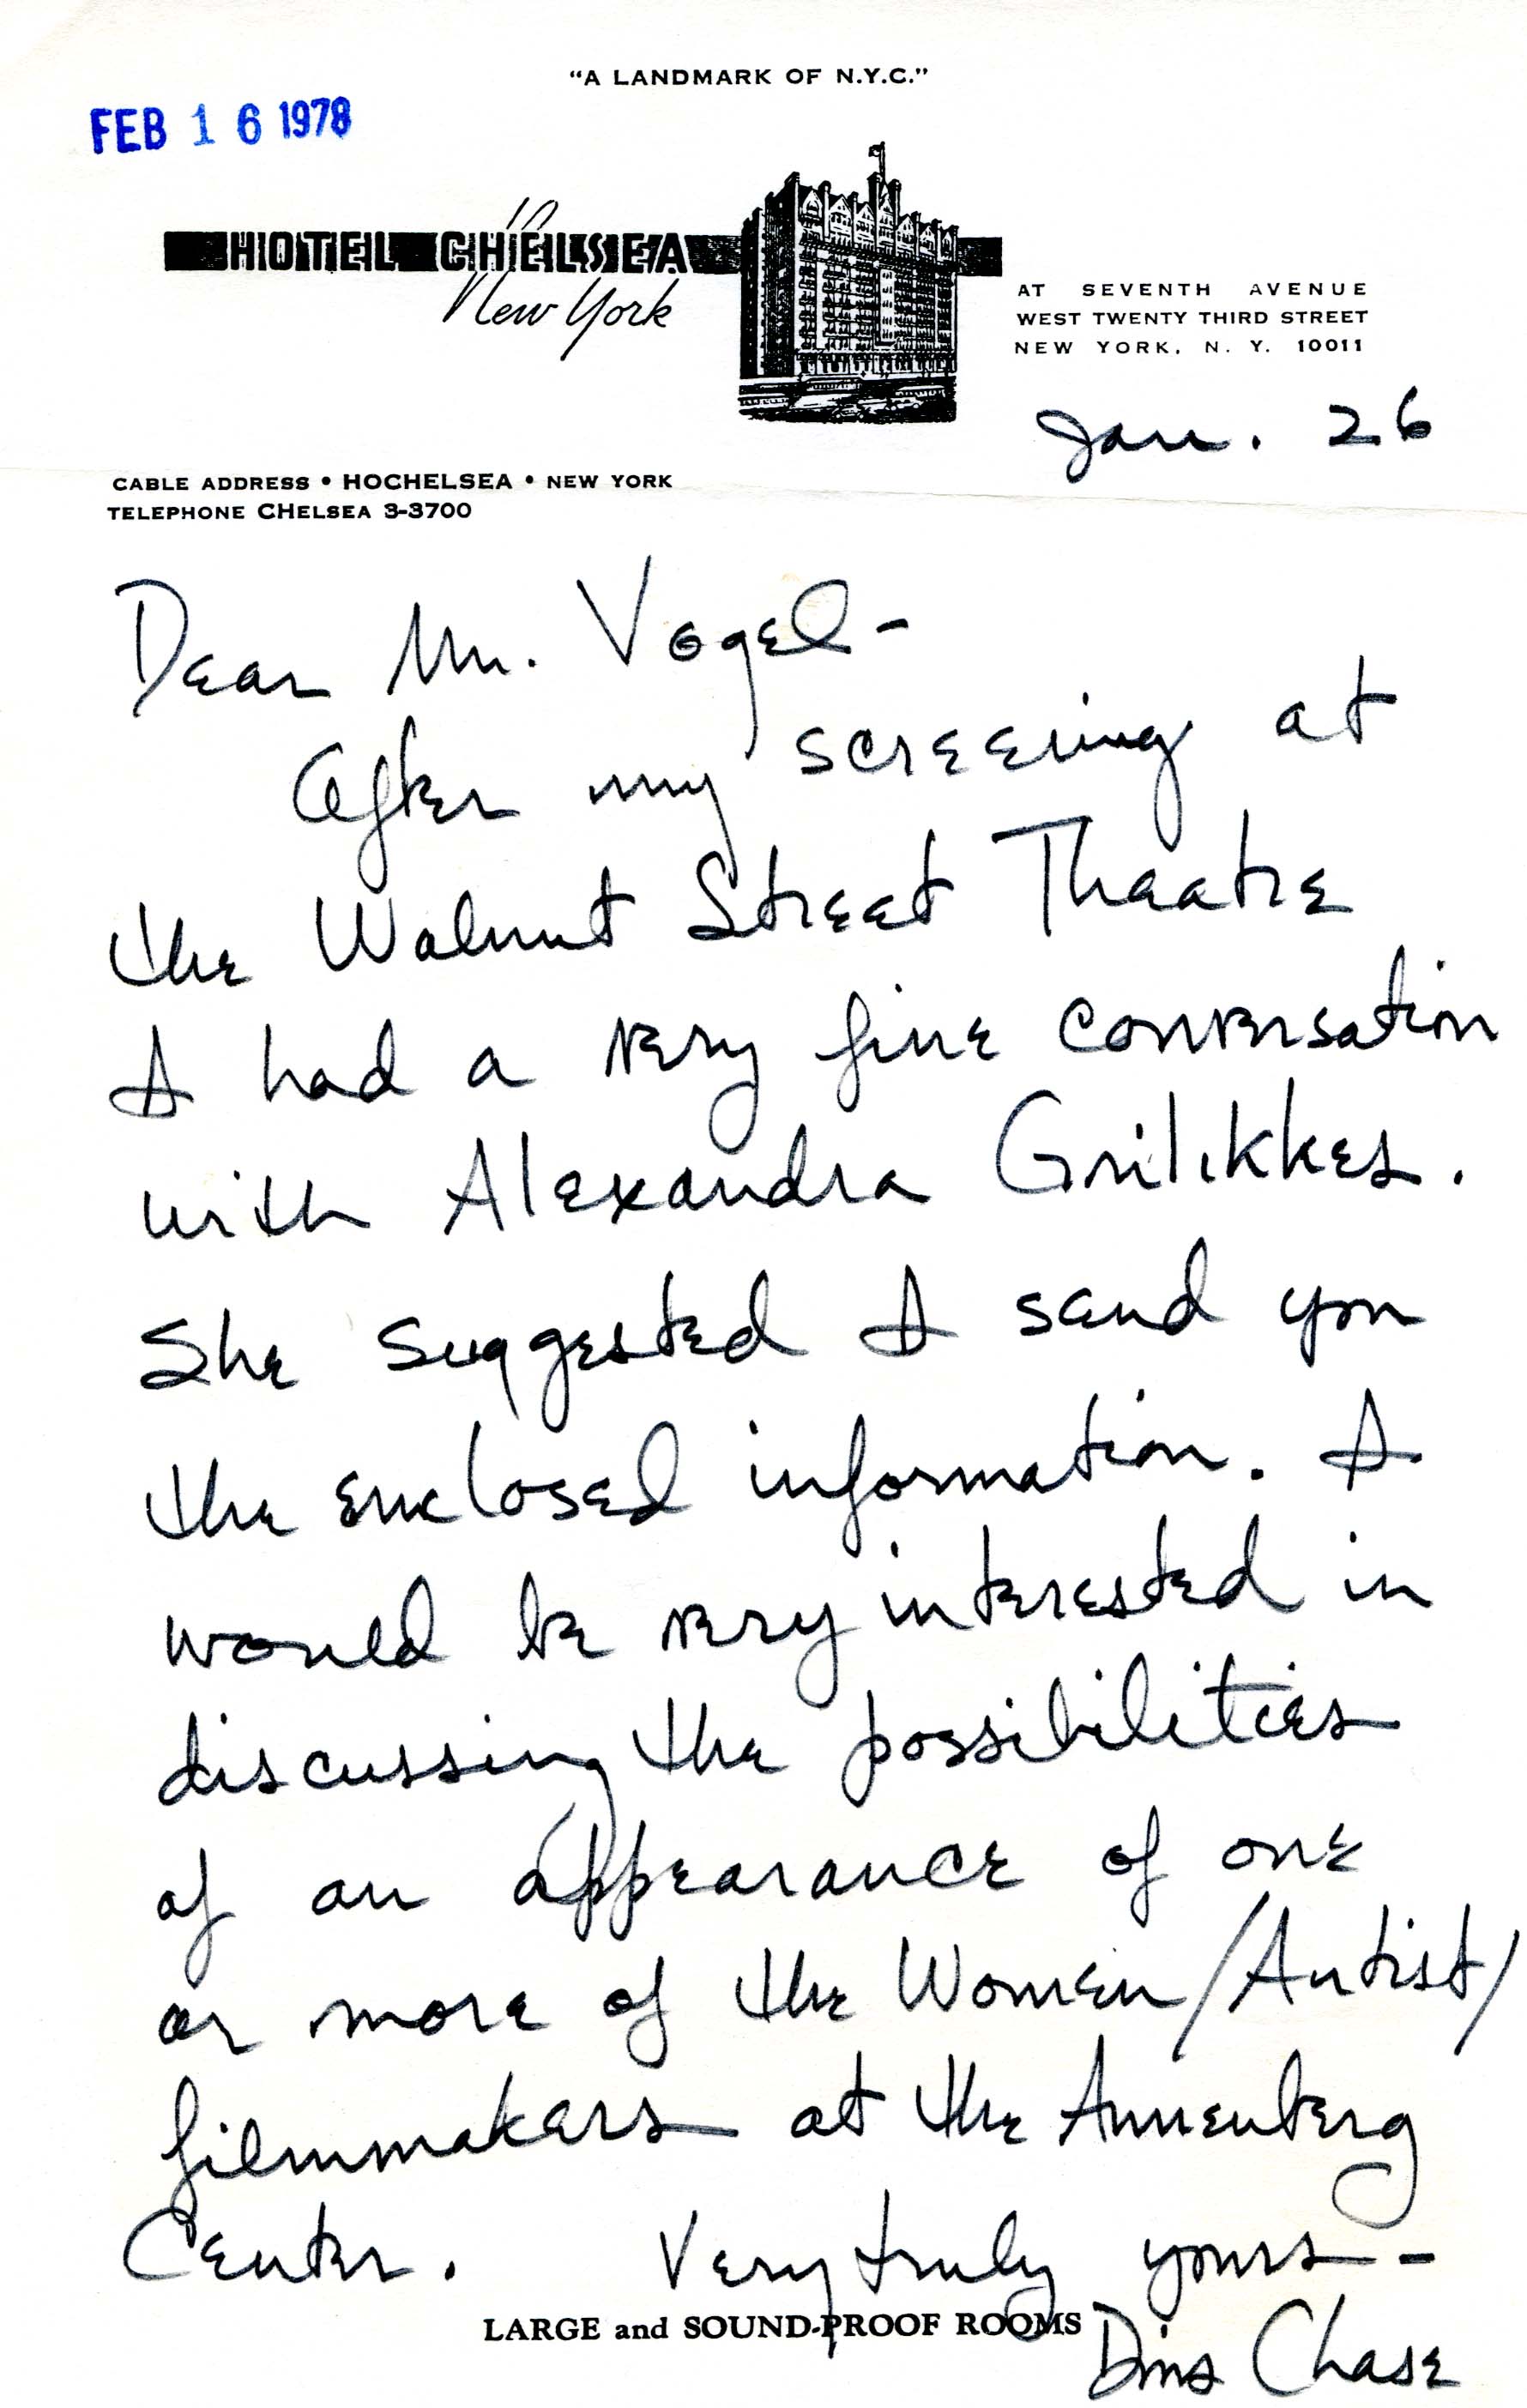 "A LANDMARK OF N.Y.C."
FEB 16 1978
HOTEL CHELSEA
New York
AT SEVENTH AVENUE
WEST TWENTY THIRD STREET
NEW YORK, N. Y. 10011
Jan. 26
CABLE ADDRESS • HOCHELSEA • NEW YORK
TELEPHONE CHELSEA 3-3700
Dear Mr. Vogel-
After my screening at
the Walnut Street Theatre
I had a very fine conversation
with Alexandra Grilikhes.
She suggested I send you
the enclosed information. I
would be very interested in
discussing the possibilities
of an appearance of one
or more of the Women/Artist/
filmmakers at the Annenberg
Center. Very truly yours-
LARGE and SOUND-PROOF ROOMS
Doris Chase